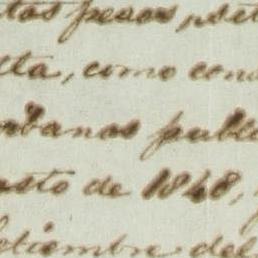 tos pesos, set
ta, como cons
urbanos publi
osto de 1848,
Setiembre del